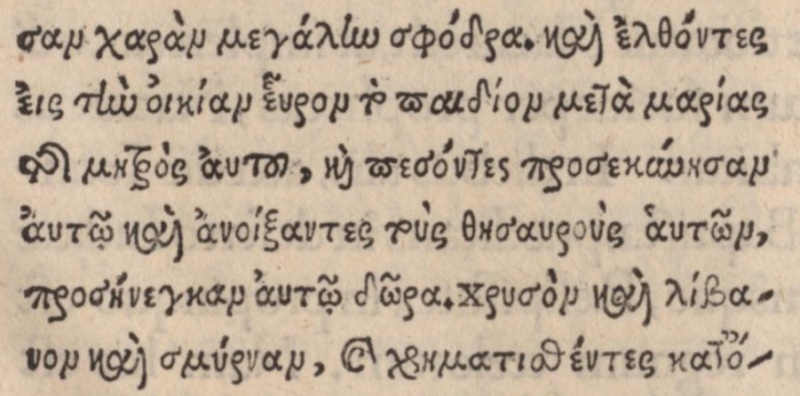 σαν χαρὰν μεγάλην σφόδρα. καὶ ἐλθόντες
εἰς τὴν ὀικίαν εὗρον τὸ παιδίον μετὰ μαρίας
τῆς μητρὸς ἀυτοῦ, καὶ πεσόντες προσεκύνησαν
ἀυτῷ καὶ ἀνοίξαντες τοὺς θησαυροὺς ἁυτῶν,
προσήνεγκαν ἀυτῷ δῶρα. χρυσὸν καὶ λίβα-
νον καὶ σμύρναν, καὶ χρηματισθέντες κατ ό-